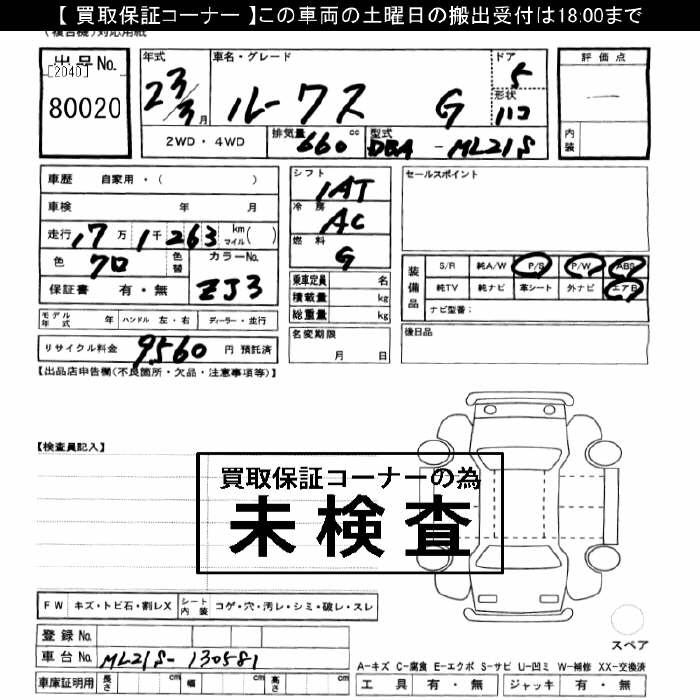 【 買取保証コーナー 】この車両の土曜日の搬出受付は18:00まで
出品No.
[2040]
80020
年式
23/3月
車名・グレード
ルークス G
ドア
5
形状
ハコ
評価点
内装
2WD・4WD
排気量 660 cc
型式 DBA-ML21S
車歴 自家用・( )
車検 年 月
走行 17万1千263 km マイル( )
色 クロ 色替
カラーNo. ZJ3
保証書 有・無
モデル年式 年 ハンドル 左・右 ディーラー・並行
リサイクル料金 9560 円 預託済
シフト
IAT
冷房
AC
燃料
G
乗車定員 名
積載量 kg
総重量 kg
名変期限
月 日
セールスポイント
装備品
S/R 純A/W P/S P/W ABS
純TV 純ナビ 革シート 外ナビ エアB
ナビ型番:
後日品
【出品店申告欄(不良箇所・欠品・注意事項等)】
【検査員記入】
買取保証コーナーの為
未検査
FW キズ・トビ石・割レX シート内装 コゲ・穴・汚レ・シミ・破レ・スレ
スペア
登録No.
車台No. ML21S-130581
車庫証明用 長さ cm 幅 cm 高さ cm
A-キズ C-腐食 E-エクボ S-サビ U-凹ミ W-補修 XX-交換済
工具 有・無 ジャッキ 有・無